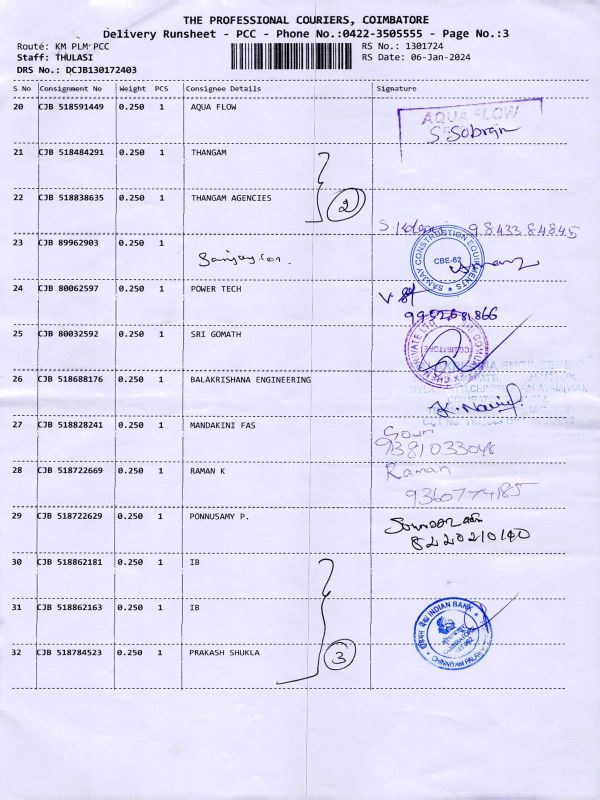 THE PROFESSIONAL COURIERS, COIMBATORE
Delivery Runsheet - PCC - Phone No.:0422-3505555 - Page No.:3
Route: KM PLM PCC RS No.: 1301724
Staff: THULASI RS Date: 06-Jan-2024
DRS No.: DCJB130172403
S No Consignment No Weight PCS Consignee Details Signature
20 CJB 518591449 0.250 1 AQUA FLOW
AQUA FLOW
21 CJB 518484291 0.250 1 THANGAM
22 CJB 518838635 0.250 1 THANGAM AGENCIES
2
9843384845
23 CJB 89962903 0.250 1
Sanjay.con.
SANJAY CONSTRUCTION EQUIPMENTS
CBE-62
24 CJB 80062597 0.250 1 POWER TECH
25 CJB 80032592 0.250 1 SRI GOMATH
26 CJB 518688176 0.250 1 BALAKRISHANA ENGINEERING
27 CJB 518828241 0.250 1 MANDAKINI FAS
9381033048
28 CJB 518722669 0.250 1 RAMAN K
Raman
9360774185
29 CJB 518722629 0.250 1 PONNUSAMY P.
8220210140
30 CJB 518862181 0.250 1 IB
31 CJB 518862163 0.250 1 IB
INDIAN BANK
32 CJB 518784523 0.250 1 PRAKASH SHUKLA
3